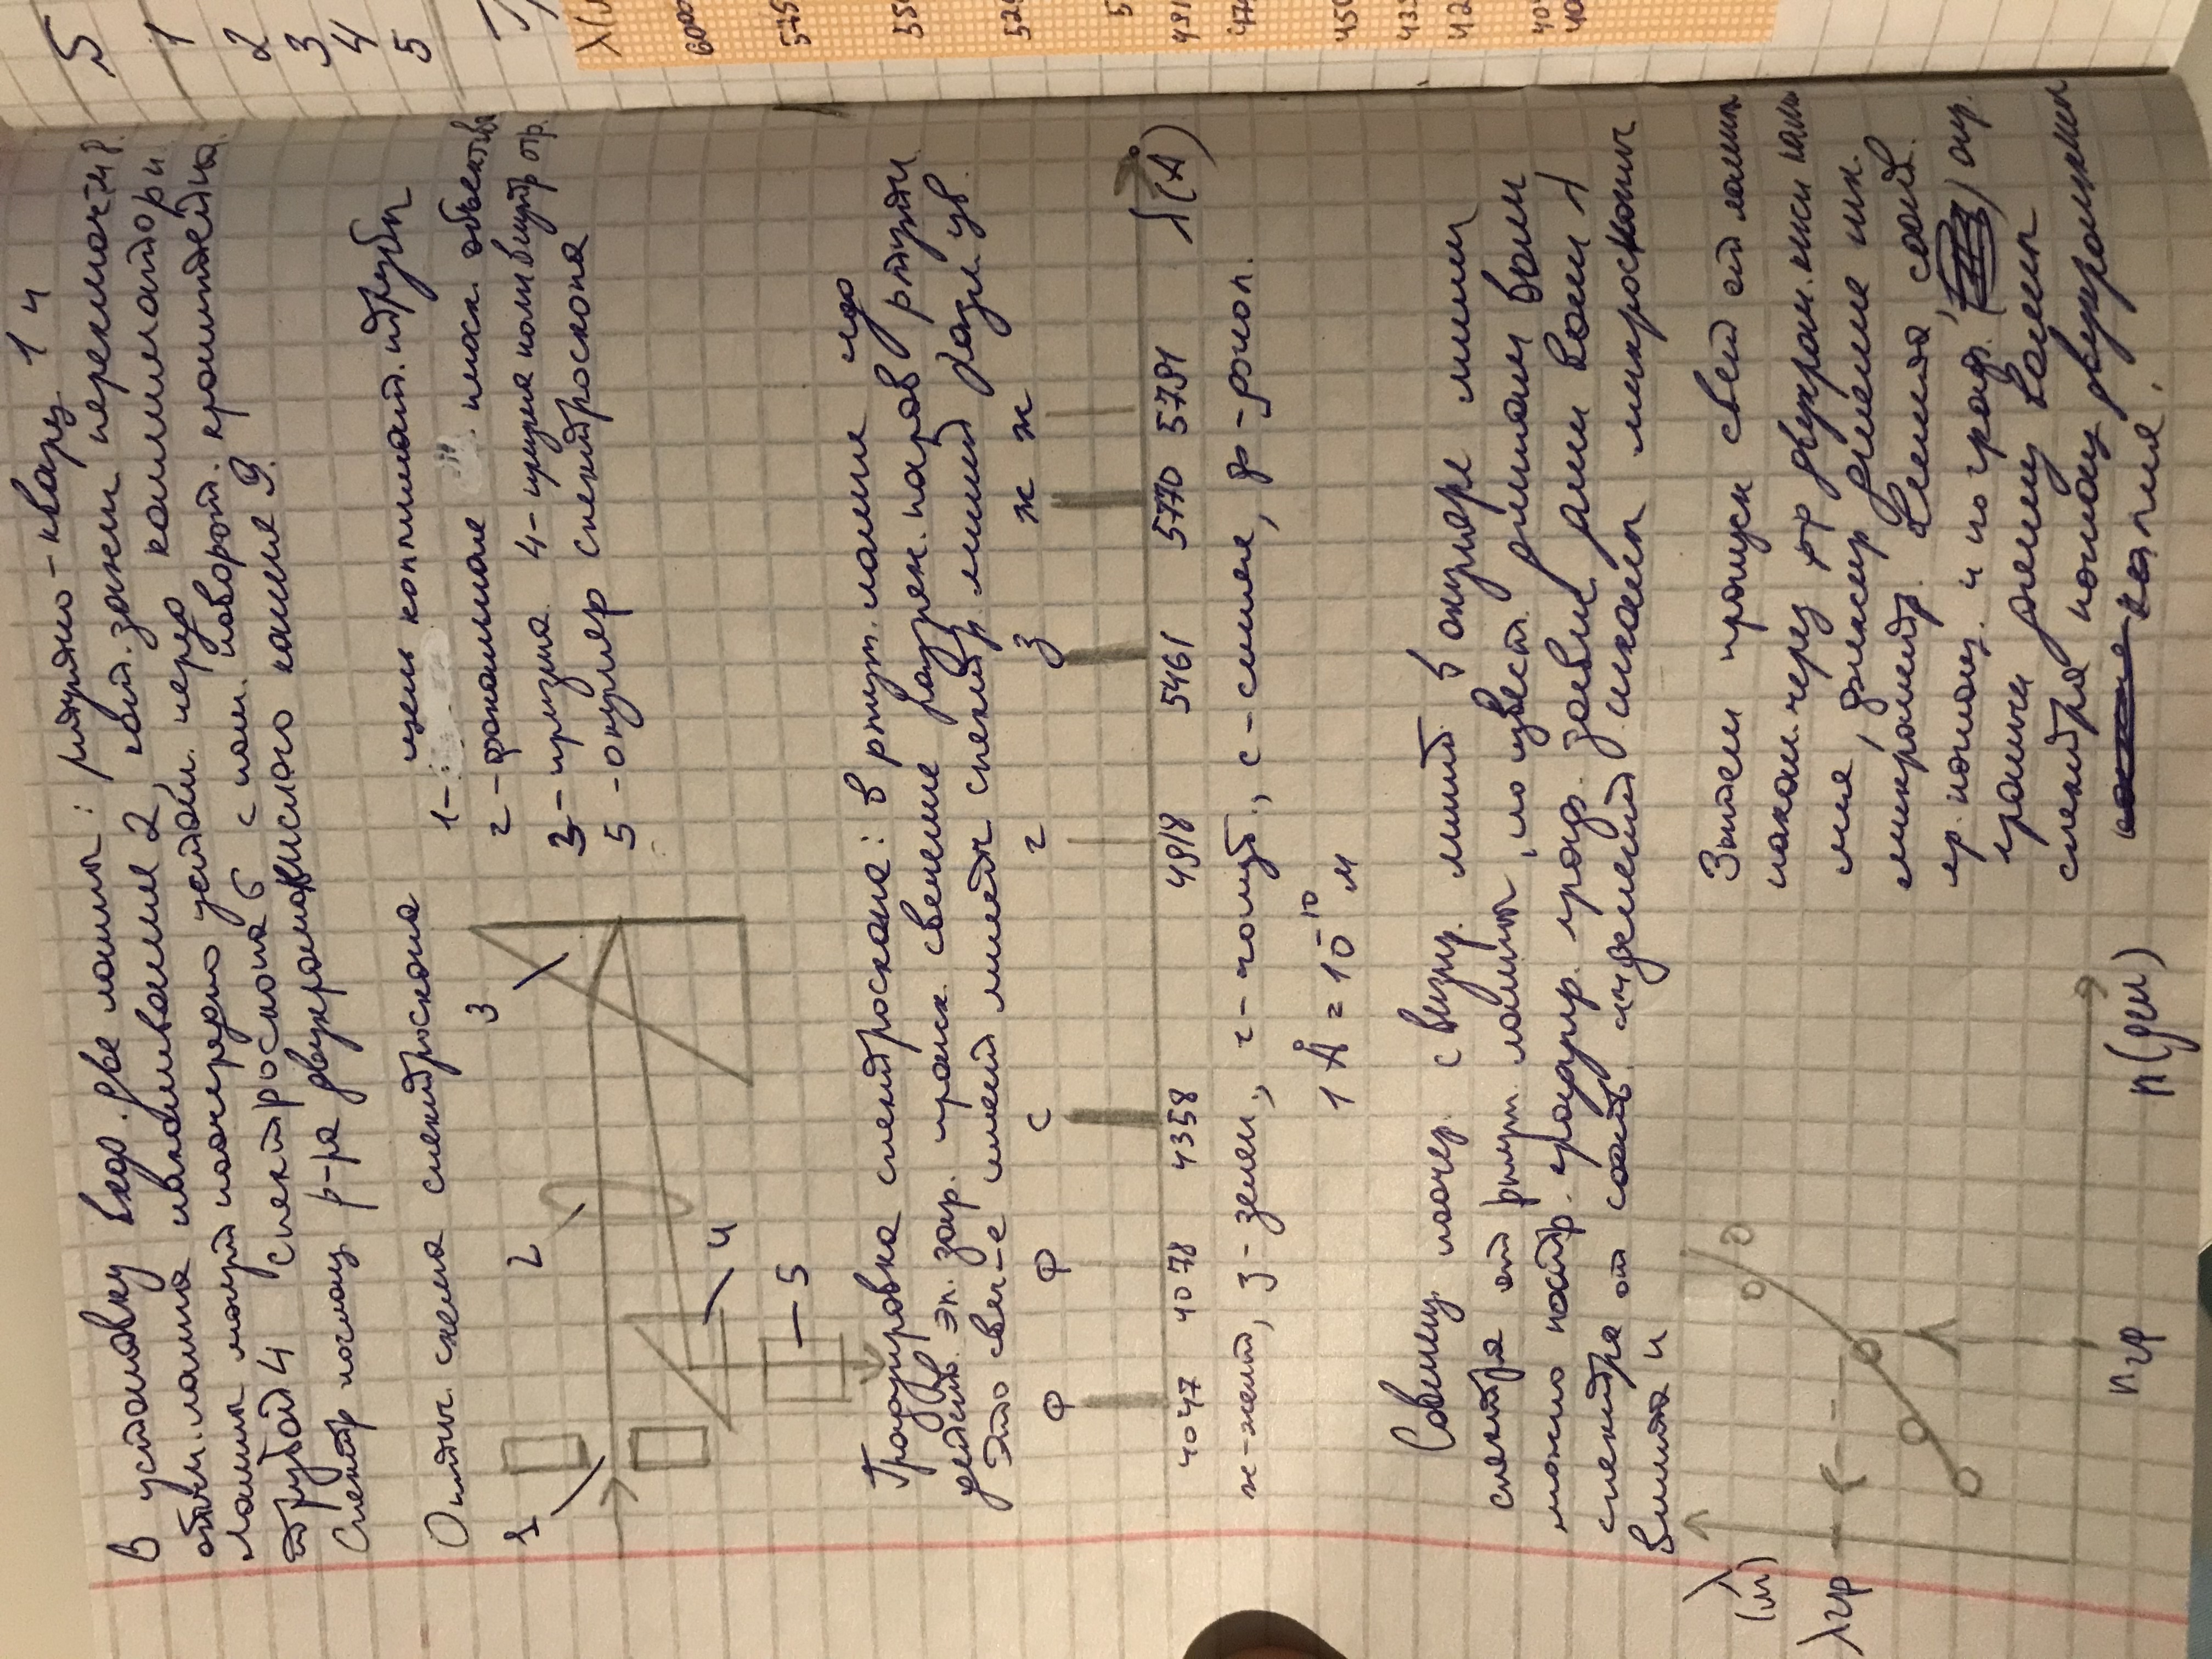 В установку вход. две лампы: ртутно-кварц 1 и
обычн. лампа накаливания 2, кот. зажиг. переключ-м 8.
Лампы могут поочередно устан. перед коллиматорн.
трубой 4 спектроскопа 6 с пом. поворот. кронштейна
Спектр поглощ р-ра двухромовокислого калия 9.
Оптич. схема спектроскопа
1 - щель коллимат. трубы
2 - фокальная плоск. объектива
3 - призма 4 - призма полн внутр отр.
5 - окуляр спектроскопа
1
2
3
4
5
Градуировка спектроскопа: в ртутн. лампе под
действ. эл. зар. происх. свечение разреж. паров ртути
Это свеч-е имеет линейч спектр линий разл. цв.
Ф Ф С Г З Ж Ж
4047 4078 4358 4918 5461 5770 5791 λ(Å)
ж-желт, з-зелен., г-голуб., с-синяя, ф-фиол.
1 Å = 10⁻¹⁰ м
Совмещ. поочер. с визир. линией в окуляре линии
спектра от ртутн. лампы, по извест. длинам волн
можно постр. градуир. граф. завис длин волн λ
спектра от соотв. делений шкалы
винта n
λ
(м)
λгр
nгр
n (дел)
Затем пропуск свет от лампы
накал. через р-р двухром. кисл калия
, фиксир деление шк.
микрометр. винта, соотв.
гр. поглощ. и по граф. опр.
гранич длину волны
спектра поглощ двухромкисл
калия.
5
1
2
3
4
5
λ(
6000
575
550
525
5
491
475
450
435
42
40
40